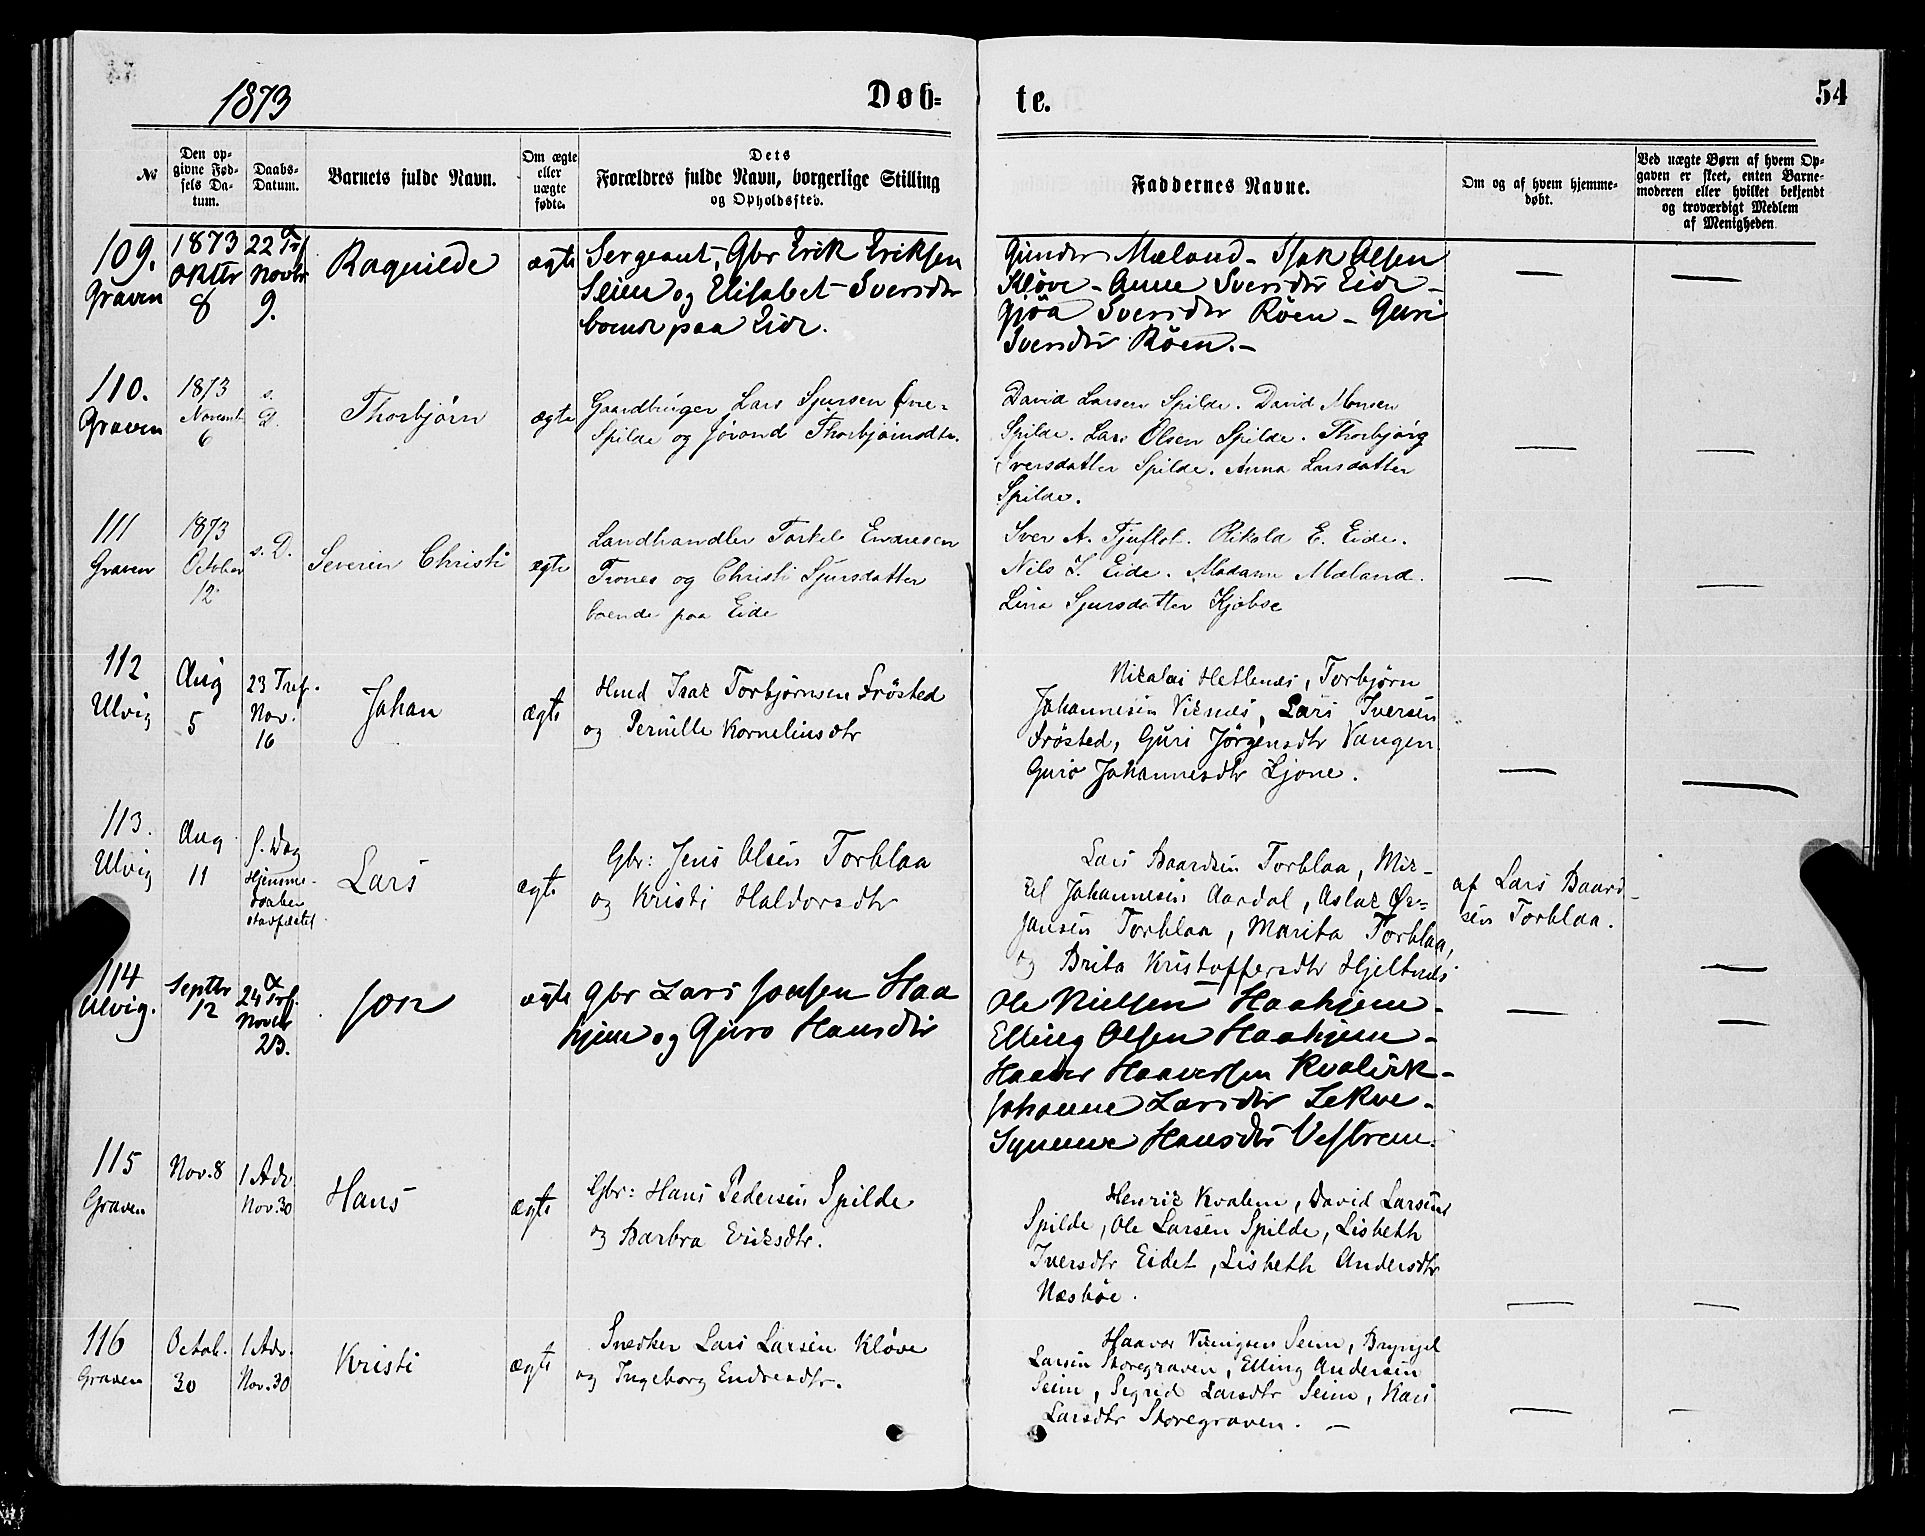 1873
Døb-
te.
54
№
Den op-
givne Fød-
sels Da-
tum.
Daabs-
Datum.
Barnets fulde Navn.
Om ægte
eller
uægte
fødte.
Dets
Forældres fulde Navn, borgerlige Stilling
og Opholdssted.
Faddernes Navne.
Om og af hvem hjemme-
døbt.
Ved uægte Børn af hvem Op-
gaven er skeet, enten Barne-
moderen eller hvilket bekjendt
og troværdigt Medlem
af Menigheden
109.
Graven
1873
Oktbr
8
22
Novbr
9.
Ragnilde
ægte
Sergeant, Gbr Erik Eriksen
Seim og Elisabet Iversdtr
boende paa Eide.
Gunder Mæland - Isak Olsen
Kløve - Anne Iversdtr Eide -
Gjøa Iversdtr Røen - Guri
Iversdtr Røen. -
110.
Graven
1873
Novemb
6
s.
D.
Thorbjørn
ægte
Gaardbruger Lars Sjursen Øvre-
Spilde og Jørand Thorbjørnsdtr.
David Larsen Spilde. David Monsen
Spilde. Lars Olsen Spilde. Thorbjørg
Iversdatter Spilde. Anna Larsdatter
Spilde.
111
Graven
1873
October
12
s. D.
Severin Christi
ægte
Landhandler Torkel Endresen
Trones og Christi Sjursdatter
boende paa Eide
Iver A. Tjuflot. Rikola E. Eide.
Nils I. Eide. Madam Mæland.
Lina Sjursdatter Kjøbse
112
Ulvig
Aug
5
23 Tref.
Nov.
16
Johan
ægte
Hmd Isak Torbjørnsen Frøsted
og Pernille Korneliusdtr
Nikolai Hetlenes, Torbjørn
Johannesen Viknes, Lars Iversen
Frøsted, Guri Jørgensdtr Vangen
Guro Johannesdtr Ljone.
113.
Ulvig
Aug
11
s. Dag
Hjemme-
daaben
stadfæstet
Lars
ægte
Gbr: Jens Olsen Torblaa
og Kristi Haldorsdtr
Lars Baardsen Torblaa, Mik-
kel Johannesen Aardal, Aslak Ør-
jansen Torblaa, Marita Torblaa,
og Brita Kristoffersdtr Hjeltnes
af Lars Baard-
sen Torblaa.
114
Ulvig.
Septbr
12
24 Trf.
Novbr
23.
Jon
ægte
Gbr Lars Jonsen Haa
hjem og Guro Hansdtr
Ole Nielsen Haahjem -
Elling Olsen Haahjem -
Haaver Haaversen Kvaleik -
Johanne Larsdtr Lekve -
Synneve Hansdtr Vestrem.
115
Graven
Nov. 8
1 Adv
Nov. 30
Hans
ægte
Gbr: Hans Pedersen Spilde
og Barbra Eriksdtr.
Henrik Kvalem, David Larsens
Spilde, Ole Larsen Spilde, Lisbeth
Iversdtr Eidet, Lisbeth Andersdtr
Næsbøe.
116
Graven
Octob.
30
1 Adv.
Nov. 30
Kristi
ægte
Snedker Lars Larsen Kløve
og Ingeborg Endresdtr.
Haavar Vikingsen Seim, Brynjel
Larsen Storegraven, Elling Andersen
Seim, Segrid Larsdtr Seim, Kari
Larsdtr Storegraven. -